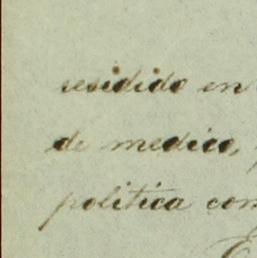 residido en
de medico,
politica con